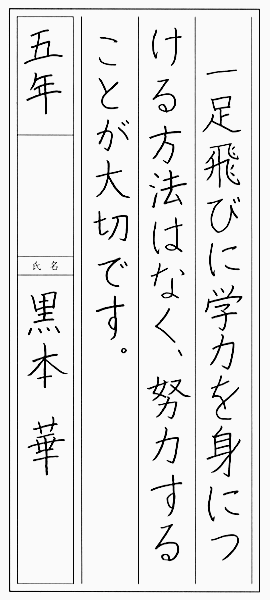 一足飛びに学力を身につ
ける方法はなく、努力する
ことが大切です。
五年
氏名
黒本 華